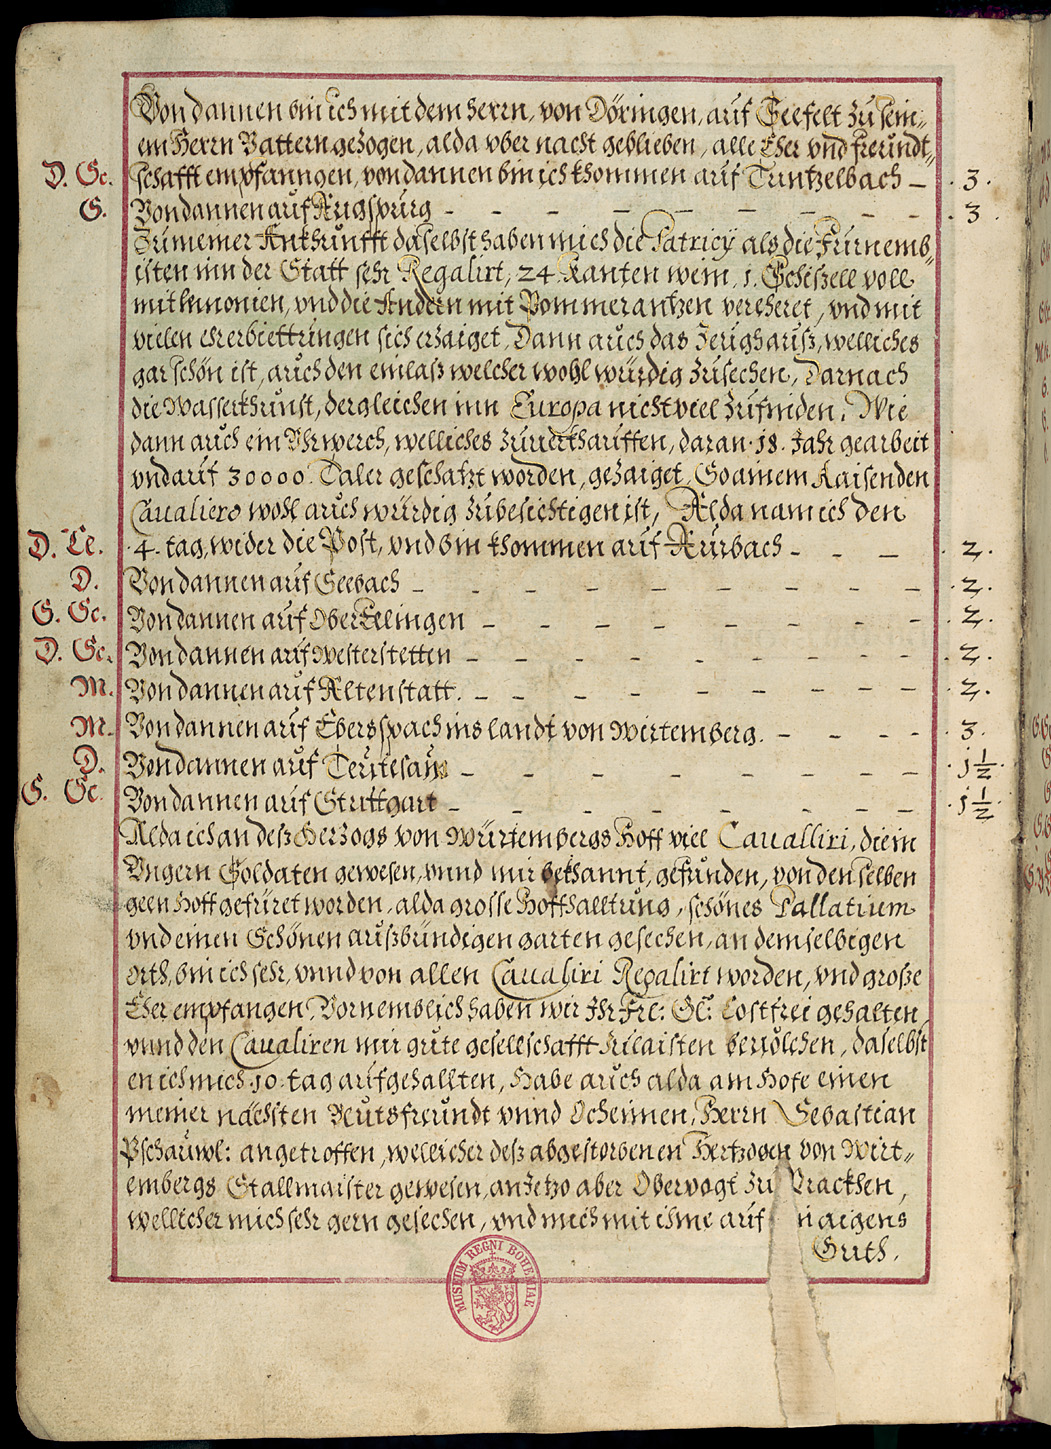 Von dannen bin ich mit dem Herrn, von Döringen, auf Seefelt zu sein„
em Herrn Vattern gezogen, alda vber nacht geblieben, alle Eher vnd freundt„
D. Sc. schafft empfanngen, von dannen bin ich khommen auf Tuntzelbach – . 3 .
S. Von dannen auf Augspurg - - - - . 3
Zu meiner Ankhunfft daselbst haben mich die Patricÿ als die Fürnemb„
isten inn der Statt sehr Regalirt, 24. Kanten wein, 1. Scheszell voll
mit lemonien, vnd die Andern mit Pommerantzen verehret, vnd mit
vielen ehrerbiettungen sich erzaiget, Dann auch das Zeughauß, welliches
gar schön ist, auch den einlaß welcher wohl würdig zusechen, Darnach
die Wasserkhunst, dergleichen inn Europa nicht viel zufinden. Wie
dann auch ein Vhrwerch, welliches zuuerkhauffen, daran .18. Jahr gearbeit
vnd auf 30000. Taler geschätzt worden, gezaiget, So ainem Raisenden
Caualiero wohl auch würdig zubesichtigen ist, Alda nam ich den
D. Te. .4. tag, wider die Post, vnd bin khommen auf Aurbach - - - . 2 .
D. Von dannen auf Seebach - - - - . 2 .
S. Sc. Von dannen auf Ober Eelingen - - - - . 2 .
D. Sc. Von dannen auf Westerstetten - - - - . 2 .
M. Von dannen auf Altenstatt. - - - - . 2 .
M. Von dannen auf Eberspach ins landt von Wirtemberg. - - - - . 3 .
D. Von dannen auf - - - - . 1 1/2 .
S. Sc. Von dannen auf Stuttgart - - - - . 1 1/2
Alda ich an deß Herzogs von Würtembergs Hoff viel Cauallirj, die in
Vngern Soldaten gewesen, vnnd mir bekhannt, gefunden, von denselben
geen Hoff gefüret worden, alda grosse Hoffhalltung, schönes Pallatium
vnd einen Schönen außbündigen garten gesechen, an demselbigen
orth, bin ich sehr, vnnd von allen Caualirj Regalirt worden, vnd große
Eher empfangen, Vornemblich haben wir Ihr Frl: Gl: Costfrei gehalten,
vnnd den Caualiren mir gute gesellschafft zulaisten beuölchen, daselbst
en ich mich .10. tag aufgehallten, Habe auch alda am Hofe einen
meiner nächsten Blutsfreundt vnnd Ocheimen, Herrn Sebastian
angetroffen, welleicher deß abgestorbenen Hertzogen von Wirt„
embergs Stallmaister gewesen, an Jetzo aber Obervogt zu Brackhen,
wellicher mich sehr gern gesechen, vnd mich mit ihme auf aigens
Guth.
MUSEUM REGNI BOHEMIAE